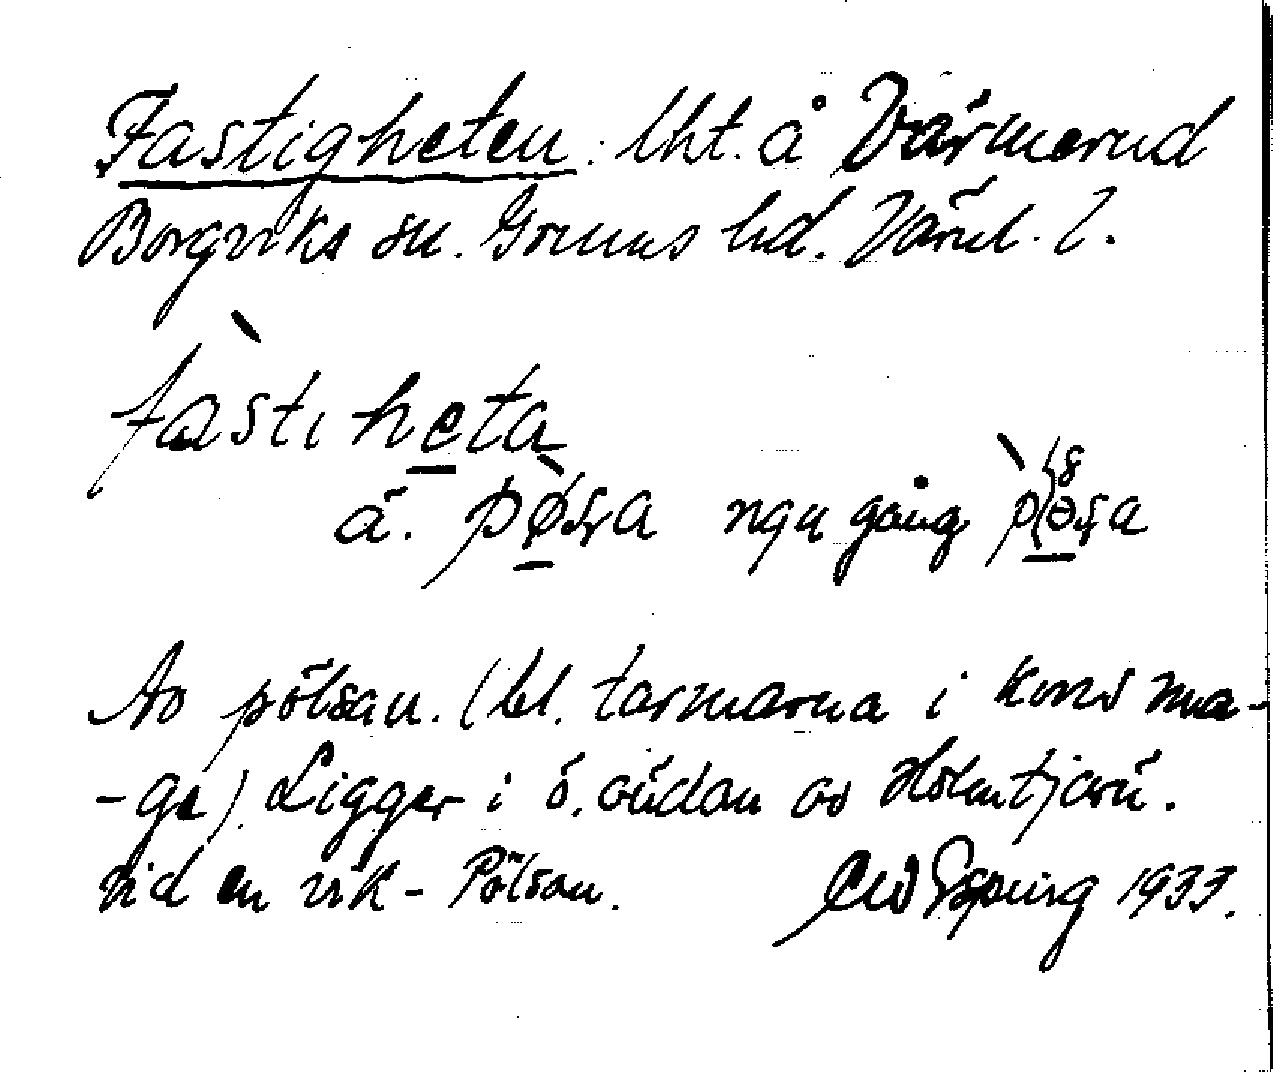 Fastigheten: lht. å Värmerud
Borgviks sn. Grums hd. Värml. l.
fastiheta
ä. pøʂa ngn gång pøʂa
Av pölsan. (bl. tarmarna i kons ma-
-ge). Ligger i ö. ändan av Holmtjärn.
vid en vik - Pölsan. 1933.